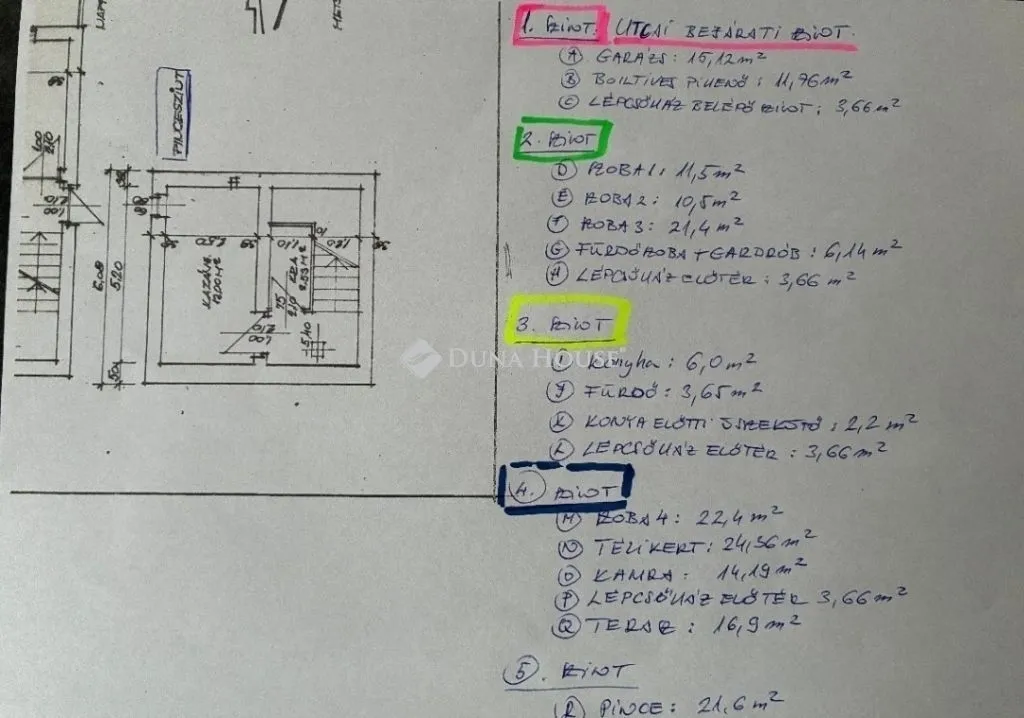 PINCESZINT
KAZÁN.
12.00 M²
1. SZINT. UTCAI BEJÁRATI SZINT.
A GARÁZS: 15,12 m²
B BOLTÍVES PIHENŐ: 11,76 m²
C LÉPCSŐHÁZ BELÉPŐ SZINT: 3,66 m²
2. SZINT
D SZOBA1: 11,5 m²
E SZOBA2: 10,5 m²
F SZOBA3: 21,4 m²
G FÜRDŐSZOBA+GARDRÓB: 6,14 m²
H LÉPCSŐHÁZ ELŐTÉR: 3,66 m²
3. SZINT
I Konyha: 6,0 m²
J FÜRDŐ: 3,65 m²
K KONYA ELŐTTI : 2,2 m²
L LÉPCSŐHÁZ ELŐTÉR: 3,66 m²
4. SZINT
M SZOBA4: 22,4 m²
N TÉLIKERT: 24,36 m²
O KAMRA: 14,19 m²
P LÉPCSŐHÁZ ELŐTÉR 3,66 m²
Q TERASZ: 16,9 m²
5. SZINT
R PINCE: 21,6 m²
6.00
5.20
50
DUNA HOUSE